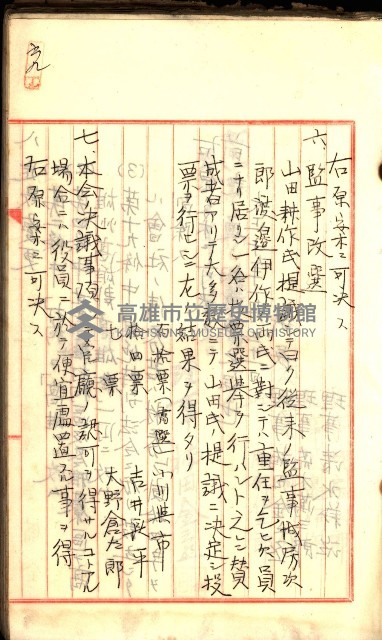 右原案ニ可決ス
六 監事改選
山田耕作氏提議テ曰ク従来ノ監事城房次
郎渡邊伊作 氏ニ對シテハ重任ヲ乞ヒ欠員
ニナリ居リシ一名ハ投票選挙ヲ行ハント之ニ賛
成者アリテ大多数ニテ山田氏提議ニ決定シ投
票ヲ行ヒシニ左ノ結果ヲ得タリ
拾票(当選) 小川
拾四票 吉井長平
七票 大野倉太郎
七 本会ノ決議事項 官廳ノ認可ヲ得サルコトアル
場合ニハ役員ニ於テ便宜處置スル事ヲ得
右原案ニ可決ス
高雄市立歷史博物館
KAOHSIUNG MUSEUM OF HISTORY